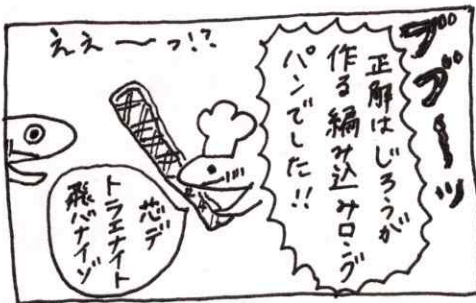 ブブーッ
正解はじろうが
作る編み込みロング
パンでした!!
ええーっ!?
芯デ
トラエナイト
飛バナイゾ